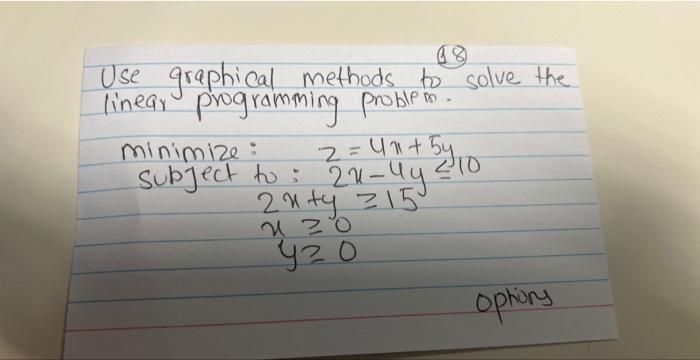 18
Use graphical methods to solve the
linear programming problem.
minimize: z = 4x + 5y
subject to: 2x - 4y ≤ 10
2x + y ≥ 15
x ≥ 0
y ≥ 0
options